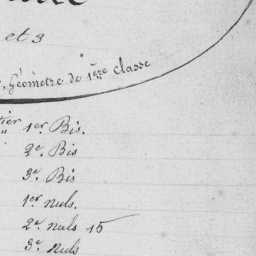 et 3
Géomètre de 1ère classe
1er Bis.
2e. Bis
3e. Bis
1er nuls.
2e. nuls 15
3e. nuls